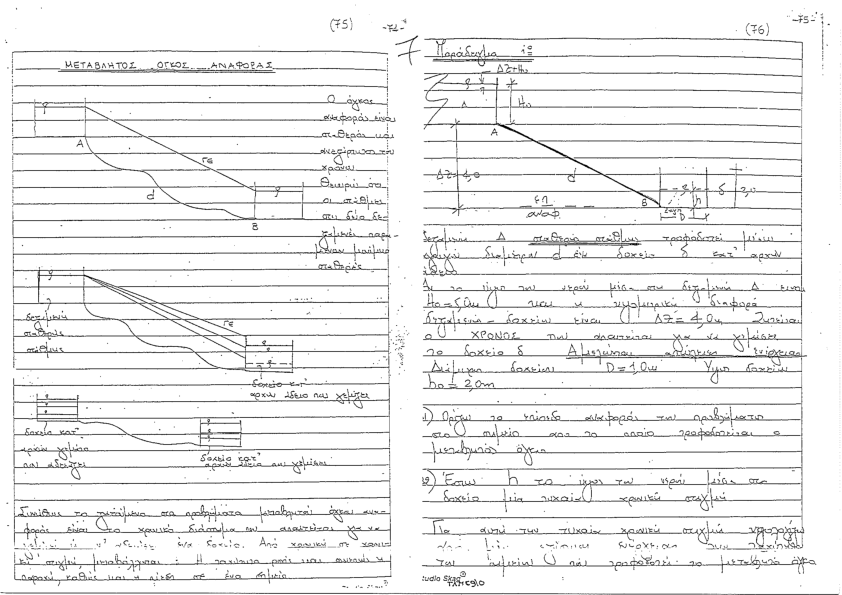 (75)
ΜΕΤΑΒΛΗΤΟΣ ΟΓΚΟΣ ΑΝΑΦΟΡΑΣ
Ο όγκος
αναφοράς είναι
σταθερός και
ανεξάρτητος του
χρόνου
Θεωρώ ότι
οι στάθμες
στις δύο δε-
ξαμενές παρα-
μένουν μονίμως
σταθερές.
A
ΓΕ
d
B
δεξαμενή
σταθερής
στάθμης
ΓΕ
δοχείο κατ'
αρχήν άδειο που γεμίζει
δοχείο κατ'
αρχήν γεμάτο
που αδειάζει
δοχείο κατ'
αρχήν άδειο που γεμίζει
Συνήθως το ζητούμενο στα προβλήματα μεταβλητού όγκου ανα-
φοράς είναι το χρονικό διάστημα που απαιτείται για να
ένα δοχείο. Από χρονική σε χρονι-
κή στιγμή μεταβάλλεται : Η ταχύτητα ροής και συνεπώς η
παροχή, καθώς και η πίεση σε ένα σημείο
(76)
-75-
7 Παράδειγμα 1ο
ΔΖ+Ho
Δ
Ho
A
ΔΖ=4,0
d
B
δ
2,0
h
D
ΕΠ
αναφ.
Δεξαμενή Δ σταθερής στάθμης τροφοδοτεί μέσω
αγωγού διαμέτρου d ένα δοχείο δ κατ' αρχήν
άδειο
Αν το ύψος του νερού μέσα στη δεξαμενή Δ είναι
και η υψομετρική διαφορά
δεξαμενής - δοχείου είναι ΔΖ= 4,0m Ζητείται
ο ΧΡΟΝΟΣ που απαιτείται για να γεμίσει
το δοχείο δ Αμελούνται απώλειες ενέργειας
Διάμετρος δοχείου D=1,0m Ύψος δοχείου
ho = 2,0m
1) Ορίζω το επίπεδο αναφοράς του προβλήματος
στο σημείο από το οποίο τροφοδοτείται ο
μεταβλητός όγκος
2) Έστω h το ύψος του νερού μέσα στο
δοχείο μία τυχαία χρονική στιγμή
Για αυτή την τυχαία χρονική στιγμή υπολογίζω
την ταχύτητα
του σημείου που τροφοδοτεί το μεταβλητό όγκο